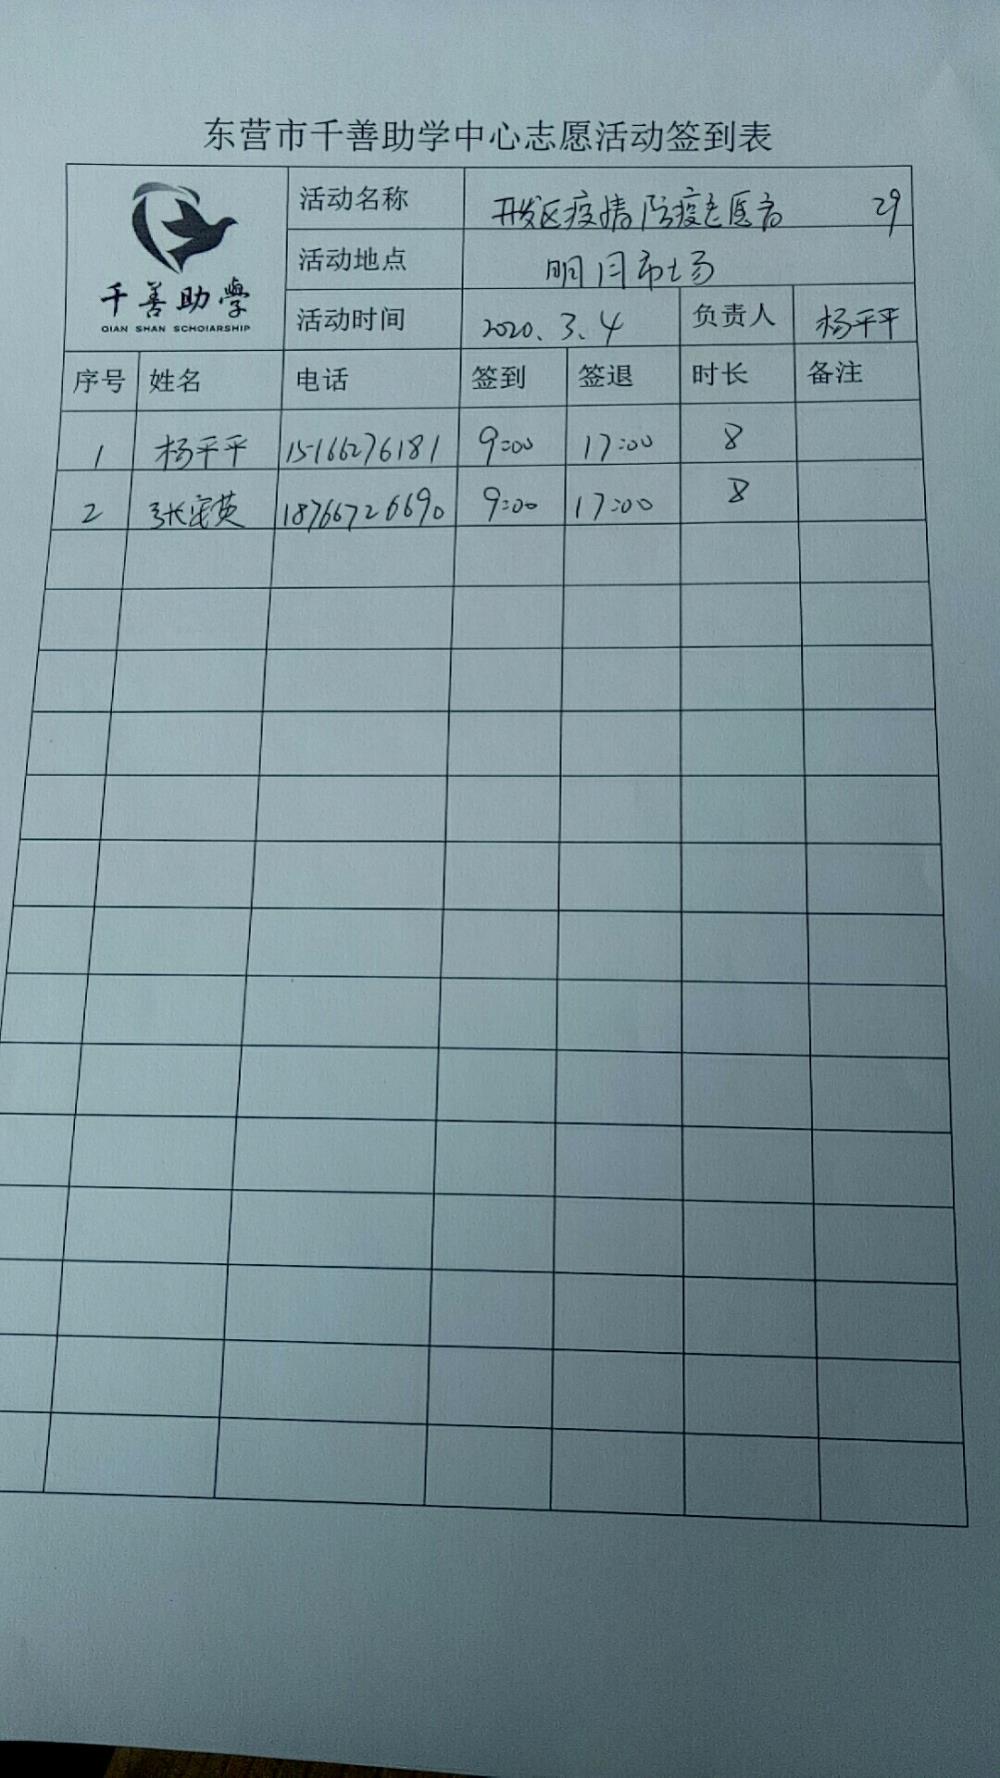 东营市千善助学中心志愿活动签到表
千善助學
QIAN SHAN SCHOIARSHIP
活动名称 开发区疫情防疫志愿者 29
活动地点 明月市场
活动时间 2020.3.4 负责人 杨平平
序号 姓名 电话 签到 签退 时长 备注
1 杨平平 15166276181 9:00 17:00 8
2 张宝英 18766726690 9:00 17:00 8